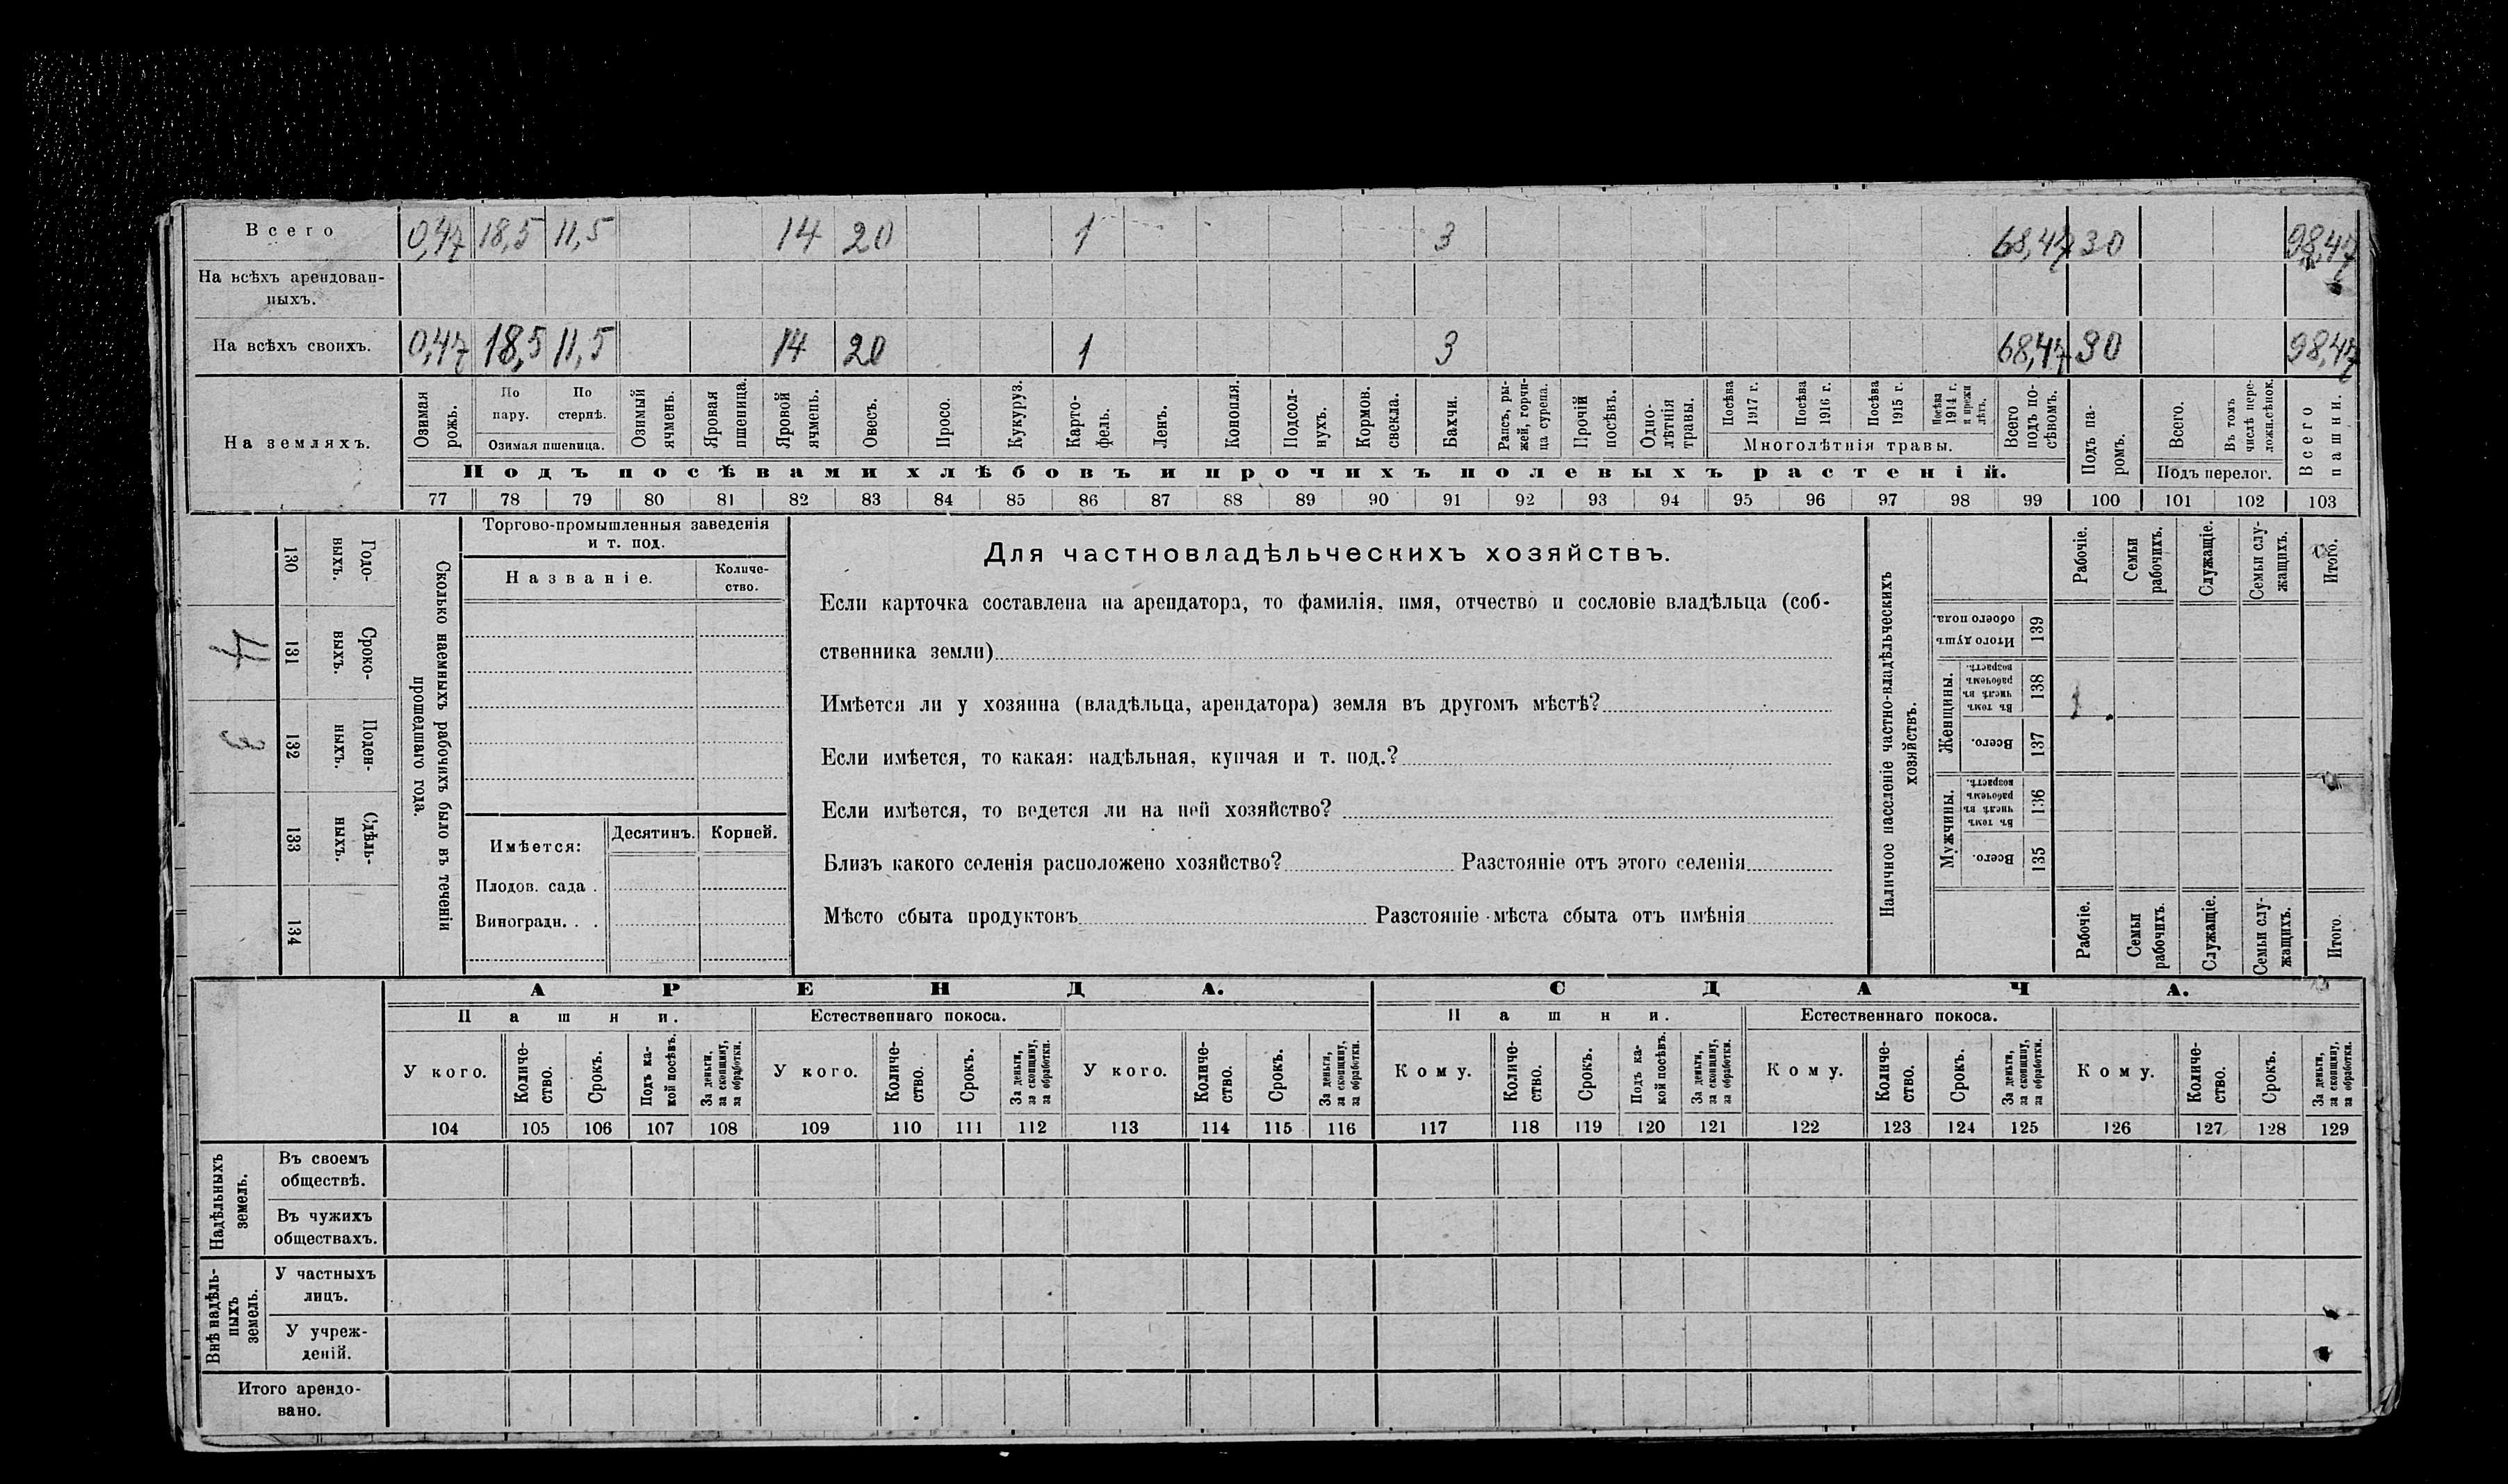 Всего 0,47 18,5 11,5 14 20 1 3 68,47 30 98,47
На всѣхъ арендован-
ныхъ.
На всѣхъ своихъ. 0,47 18,5 11,5 14 20 1 3 68,47 30 98,47
На земляхъ.
Озимая рожь.
По пару.
По стернѣ.
Озимая пшеница.
Озимый ячмень.
Яровая пшеница.
Яровой ячмень.
Овесъ.
Просо.
Кукуруз.
Карто-
фель.
Ленъ.
Конопля.
Подсол-
нухъ.
Кормов. свекла.
Бахчи.
Рапсъ, ры-
жей, горчи-
ца сурепа.
Прочій посѣвъ.
Одно-
лѣтнія
травы.
Посѣва 1917 г.
Посѣва 1916 г.
Посѣва 1915 г.
Посѣва 1914 г. и прежн лѣтъ.
Многолѣтнія травы.
Всего подъ по-
сѣвомъ.
Подъ па-
ромъ.
Всего.
Въ томъ числѣ пере-
ложн.сѣнок.
Подъ перелог.
Всего пашни.
Подъ посѣвами хлѣбовъ и прочихъ полевыхъ растеній.
77 78 79 80 81 82 83 84 85 86 87 88 89 90 91 92 93 94 95 96 97 98 99 100 101 102 103
Сколько наемныхъ рабочихъ было въ теченіи
прошедшаго года.
Годо-
выхъ.
130
Сроко-
выхъ.
131
4
Поден-
ныхъ.
132
3
Сдѣль-
ныхъ.
133
134
Торгово-промышленныя заведенія
и т. под.
Названіе.
Количе-
ство.
Имѣется:
Десятинъ. Корней.
Плодов. сада .
Виноградн. . .
Для частновладѣльческихъ хозяйствъ.
Если карточка составлена на арендатора, то фамилія, имя, отчество и сословіе владѣльца (соб-
ственника земли)
Имѣется ли у хозяина (владѣльца, арендатора) земля въ другомъ мѣстѣ?
Если имѣется, то какая: надѣльная, купчая и т. под.?
Если имѣется, то ведется ли на ней хозяйство?
Близъ какого селенія расположено хозяйство? Разстояніе отъ этого селенія
Мѣсто сбыта продуктовъ Разстояніе мѣста сбыта отъ имѣнія
Наличное населеніе частно-владѣльческихъ
хозяйствъ.
Рабочіе.
Семьи рабочихъ.
Служащіе.
Семьи слу-
жащихъ.
Итого.
Итого душъ обоего пола.
139
Женщины.
Въ томъ числѣ въ рабочемъ возрастѣ.
138
Всего.
137
Мужчины.
Въ томъ числѣ въ рабочемъ возрастѣ.
136
Всего.
135
Рабочіе.
Семьи рабочихъ.
Служащіе.
Семьи слу-
жащихъ.
Итого.
АРЕНДА. СДАЧА.
Пашни. Естественнаго покоса. Пашни. Естественнаго покоса.
У кого.
Количе-
ство.
Срокъ.
Подъ ка-
кой посѣвъ.
За деньги,
за скопщину,
за обработки.
У кого.
Количе-
ство.
Срокъ.
За деньги,
за скопщину,
за обработки.
У кого.
Количе-
ство.
Срокъ.
За деньги,
за скопщину,
за обработки.
Кому.
Количе-
ство.
Срокъ.
Подъ ка-
кой посѣвъ.
За деньги,
за скопщину,
за обработки.
Кому.
Количе-
ство.
Срокъ.
За деньги,
за скопщину,
за обработки.
Кому.
Количе-
ство.
Срокъ.
За деньги,
за скопщину,
за обработки.
104 105 106 107 108 109 110 111 112 113 114 115 116 117 118 119 120 121 122 123 124 125 126 127 128 129
Надѣльныхъ
земель.
Въ своемъ
обществѣ.
Въ чужихъ
обществахъ.
Внѣ надѣль-
ныхъ
земель.
У частныхъ
лицъ.
У учреж-
деній.
Итого арендо-
вано.